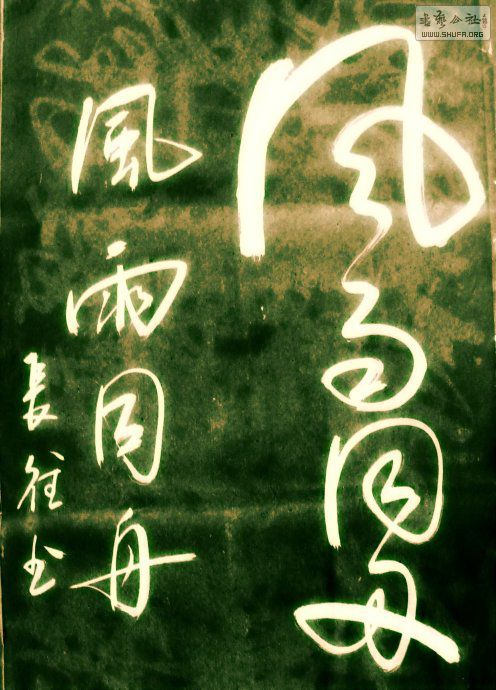 風雨同舟
風雨同舟
長征书
书艺公社
WWW.SHUFA.ORG